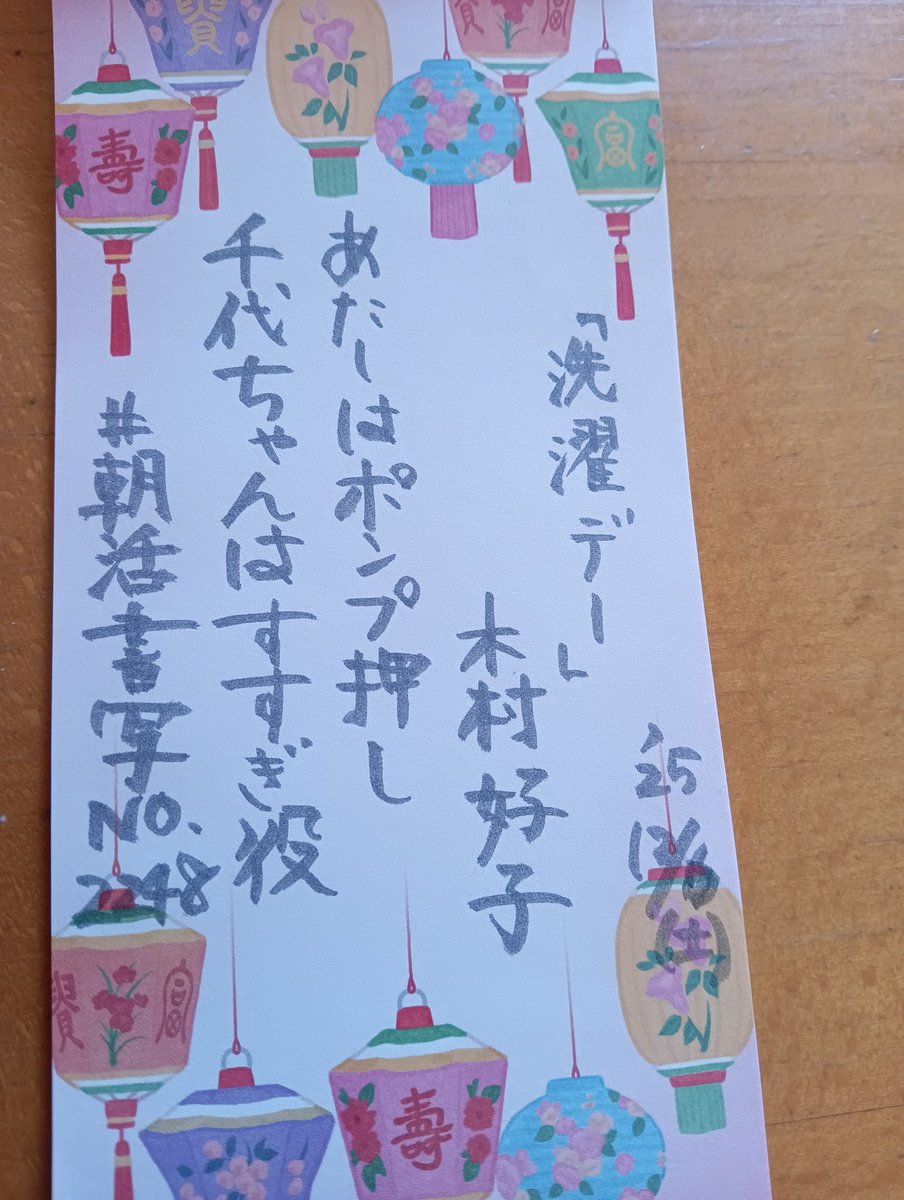 '25
12/13(土)
「洗濯デー」
木村好子
あたしはポンプ押し
千代ちゃんはすすぎ役
#朝活書写
NO.
2248
寿
寿